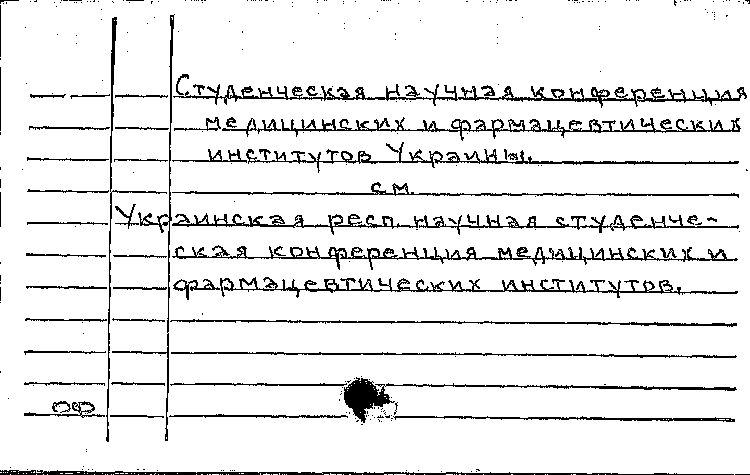 Студенческая научная конференция
медицинских и фармацевтических
институтов Украины.
см.
Украинская респ. научная студенче-
ская конференция медицинских и
фармацевтических институтов.